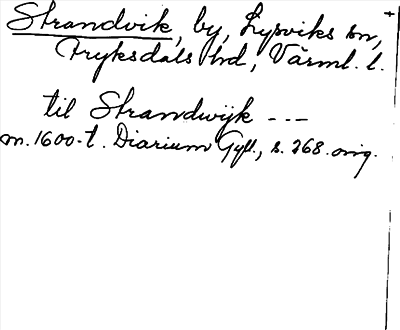 Strandvik, by, Lysviks sn,
Fryksdals hd, Värml. l.
til Strandwijk ---
m. 1600-t. Diarium Gyll., s. 268. orig.